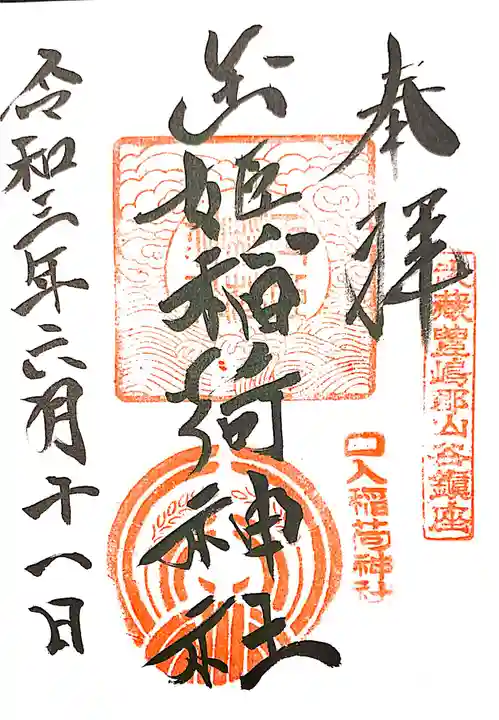 奉拝
武蔵豊嶋郡山谷鎮座
口入稲荷神社
玉姫稲荷神社
令和三年六月十一日